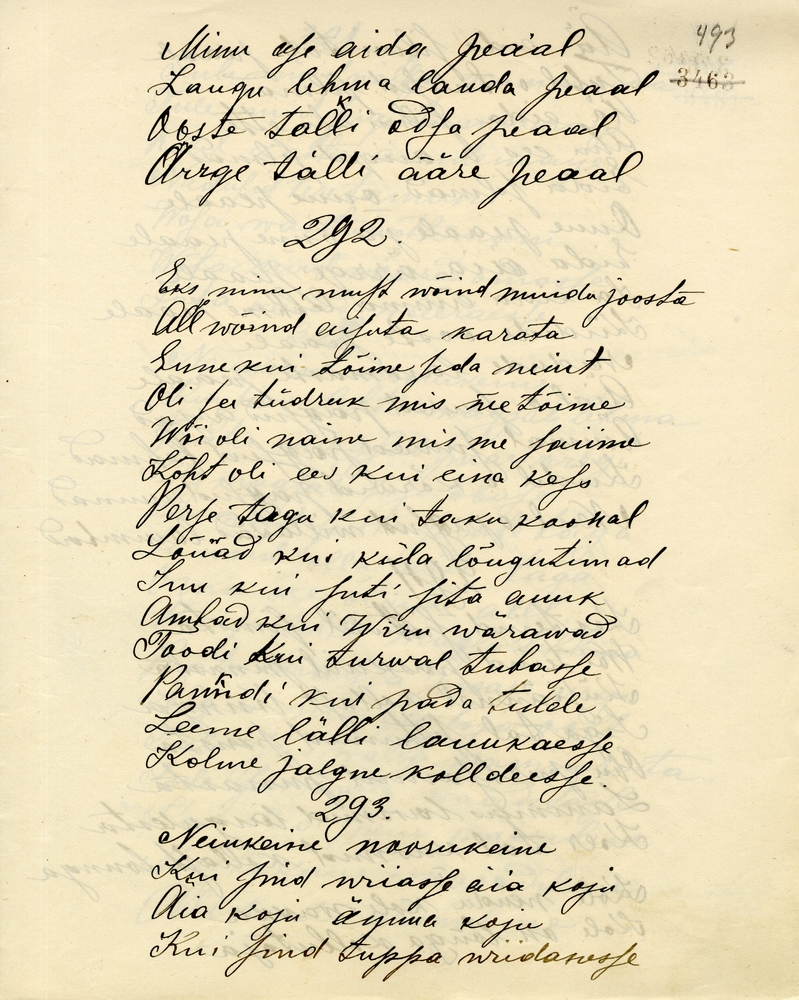 493
3463
Minu ase aida peaal
Laugu lehma lauda peaal
Ooste talli odsa peaal
Ärrge tälli ääre peaal
292.
Eks minu nuist wõind muidu joosta
All wõind aisuta karata
Ennekui tõime seda neiut
Oli see tüdruk mis me tõime
Wõi oli naine mis me saiime
Kõht oli ees kui eina kess
Perse taga kui taku koonal
Lõuad kui küla lõugutimad
Suu kui suti sita auuk
Ambad kui Wiru wärawad
Toodi kui turwal tubasse
Pandi kui pada tulele
Leeme lälli lauukaesse
Kolme jalgne kolldeesse.
293.
Neiukeine noorukeine
Kui sind wiiasse äia koju
Äia koju ämma koju
Kui sind tuppa wiidanesse